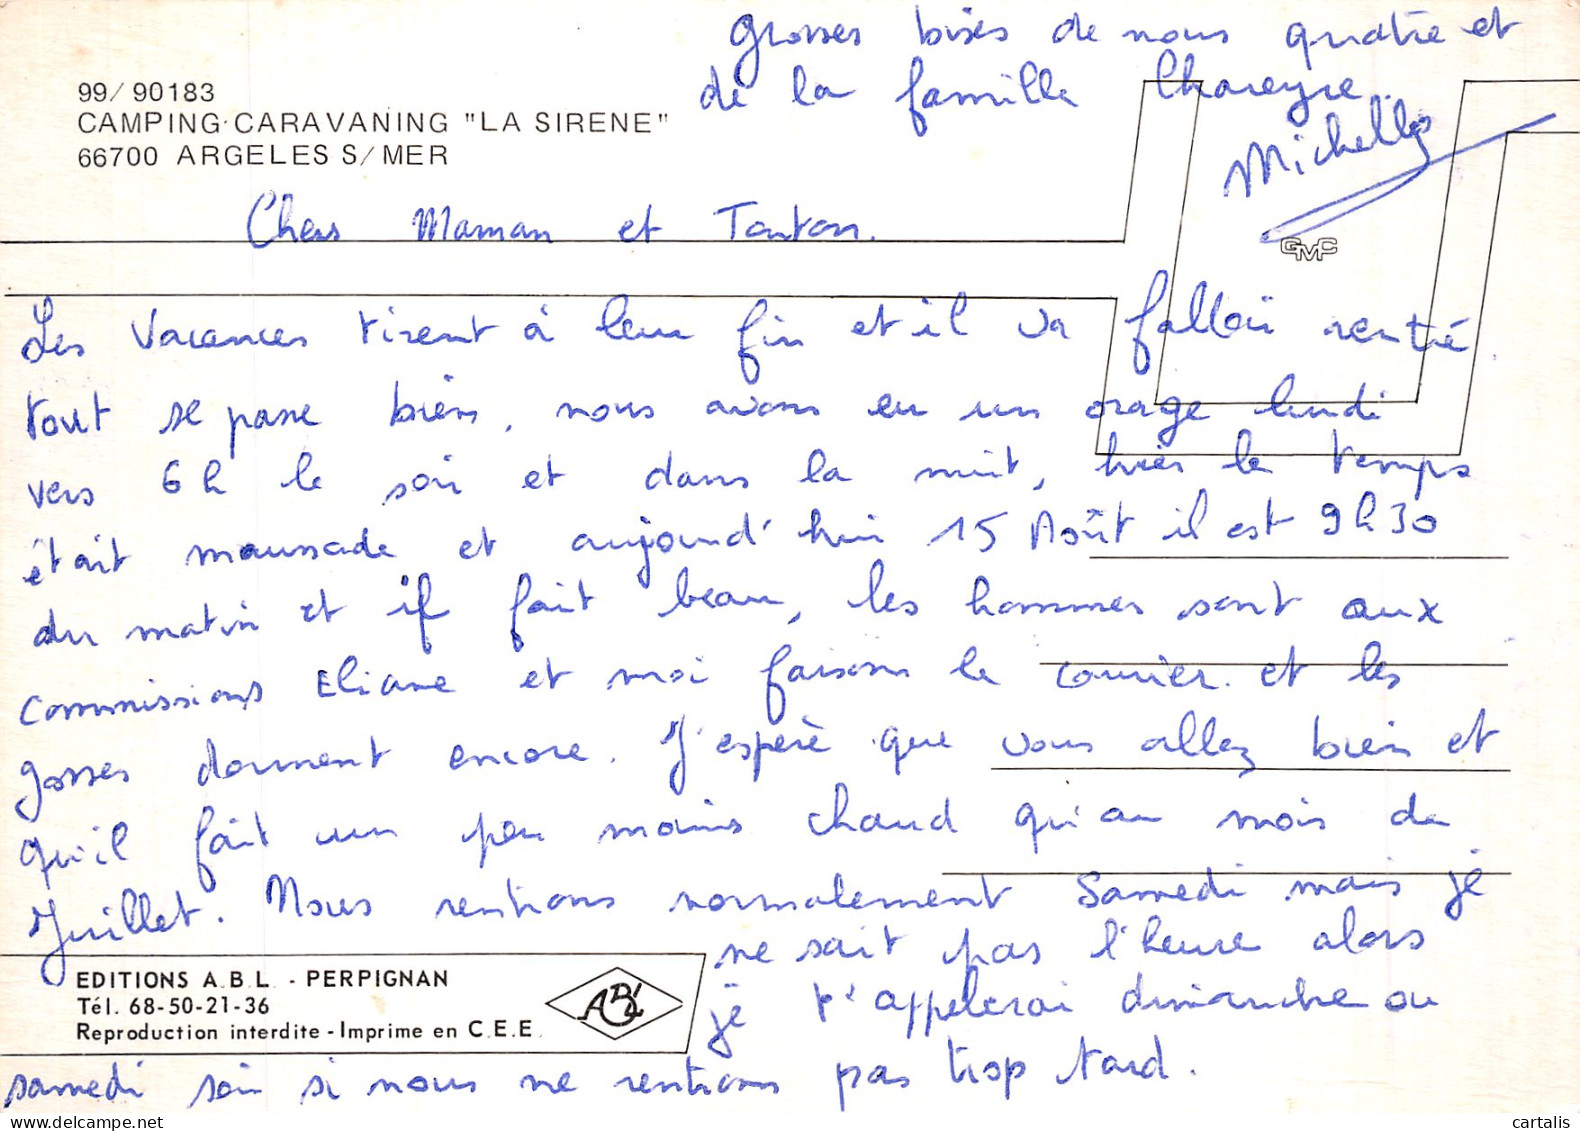 Grosses bises de nous quatre et
de la famille Chareyre.
Michelle
99/ 90183
CAMPING-CARAVANING "LA SIRENE"
66700 ARGELES S/MER
GMC
Chers Maman et Tonton.
Les Vacances tirent à leur fin et il va falloir rentré
tout se passe bien, nous avons eu un orage lundi
vers 6h le soir et dans la nuit, hier le temps
était maussade et aujourd'hui 15 Août il est 9h30
du matin et il fait beau, les hommes sont aux
commissions Eliane et moi faisons le courrier. et les
gosses dorment encore. J'espère que vous allez bien et
qu'il fait un peu moins chaud qu'au mois de
Juillet. Nous rentrons normalement Samedi mais je
ne sait pas l'heure alors
je t'appelerai dimanche ou
samedi soir si nous ne rentrons pas trop tard.
EDITIONS A.B.L. - PERPIGNAN
Tél. 68-50-21-36
Reproduction interdite - Imprime en C.E.E.
ABL
cartalis